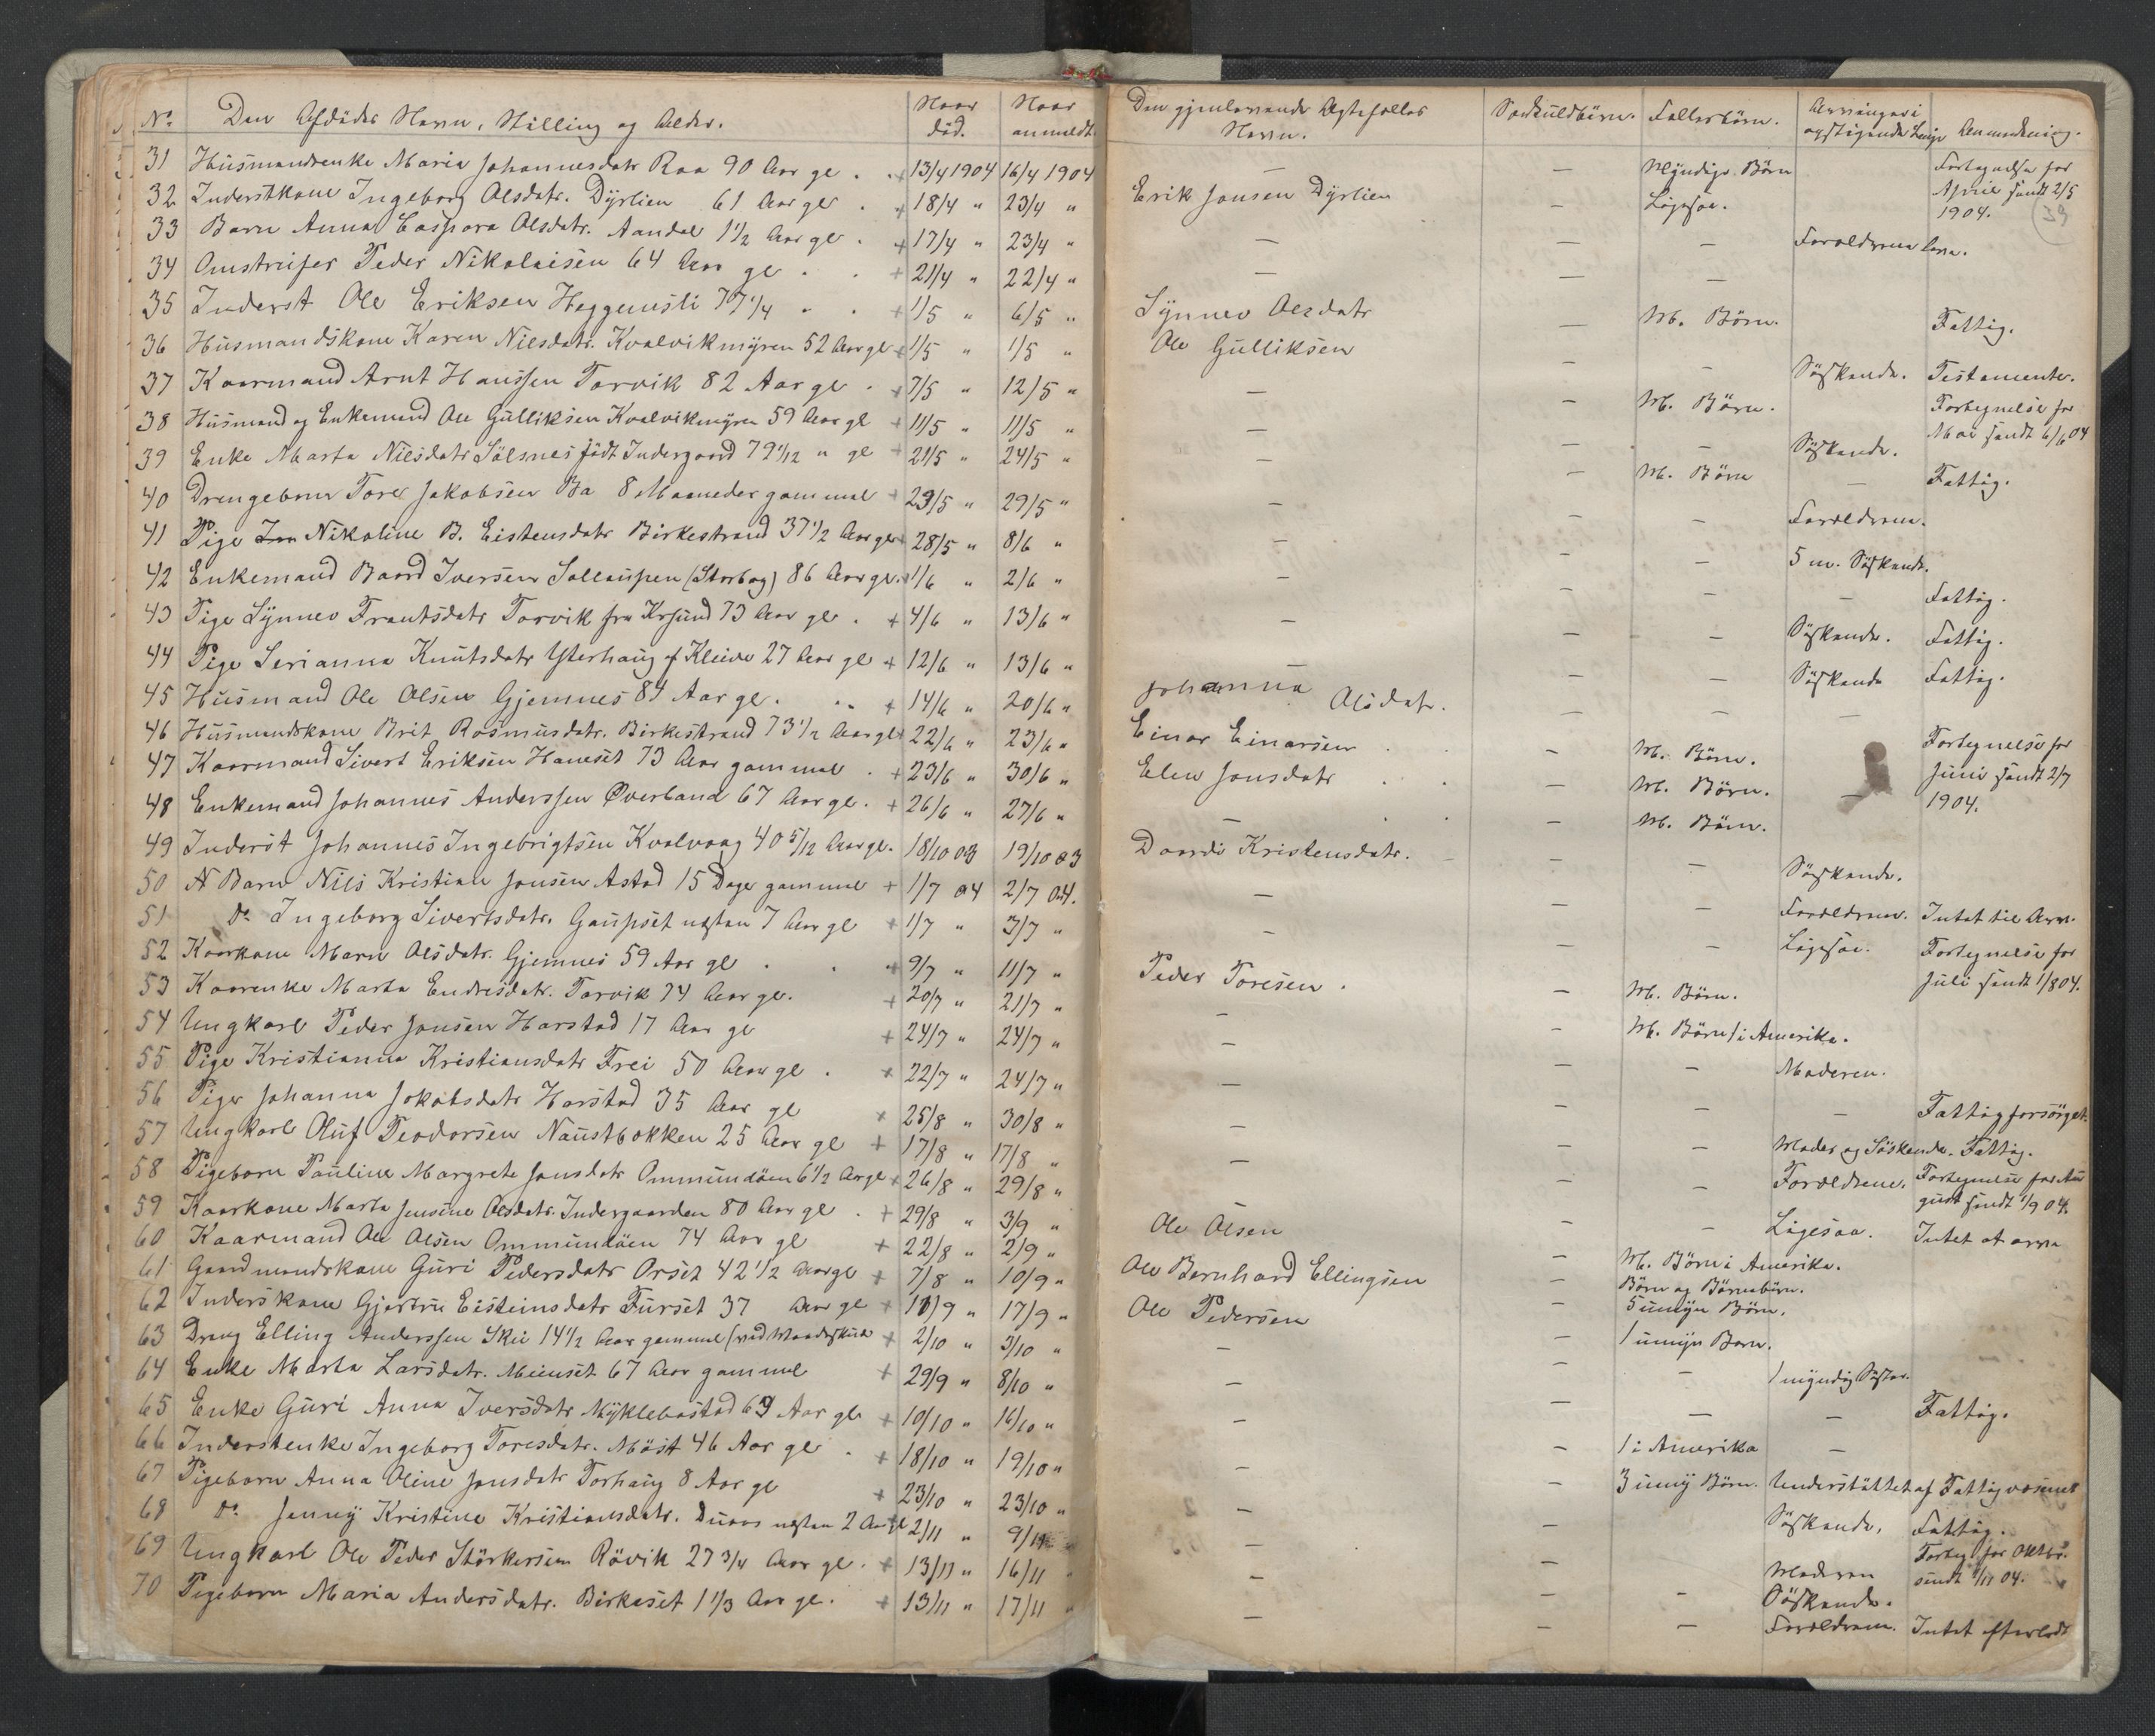 No. Den Afdødes Navn, Stilling og Alder. Naar død. Naar anmeldt.
31 Husmandsenke Maria Johannesdatr Raa 90 Aar gl . + 13/4 1904 16/4 1904
32 Inderstkone Ingeborg Olsdatr. Dyrlien 61 Aar gl . + 18/4 " 23/4 "
33 Barn Anna Caspora Olsdatr. Aandal 1 1/2 Aar gl . + 17/4 " 23/4 "
34 Omstreifer Peder Nikolaisen 64 Aar gl . . + 21/4 " 22/4 "
35 Inderst Ole Eriksen Heggemsli 77 1/4 " . + 1/5 " 6/5 "
36 Husmandskone Karen Nilsdatr. Kvalvikmyren 52 Aar gl + 1/5 " 1/5 "
37 Kaarmand Arnt Hanssen Torvik 82 Aar gl . + 7/5 " 12/5 "
38 Husmand og Enkemand Ole Gulliksen Kvalvikmyren 59 Aar gl + 11/5 " 11/5 "
39 Enke Marta Nilsdatr Sølsnes født Indergaard 79 1/12 " gl + 21/5 " 24/5 "
40 Drengebarn Tore Jakobsen Bø 8 Maaneder gammel + 29/5 " 29/5 "
41 Pige Nikoline B. Eistensdatr Birkestrand 37 1/2 Aar gl + 28/5 " 8/6 "
42 Enkemand Baard Iversen Sollaupen (Storbog) 86 Aar gl. + 1/6 " 2/6 "
43 Pige Synnev Frantsdatr Torvik fra Krsund 73 Aar gl . + 4/6 " 13/6 "
44 Pige Serianna Knutsdatr Ysterhaug af Kleive 27 Aar gl + 12/6 " 13/6 "
45 Husmand Ole Olsen Gjemnes 84 Aar gl . .. + 14/6 " 20/6 "
46 Husmandskone Brit Rasmusdatr. Birkestrand 73 1/2 Aar gl + 22/6 " 23/6 "
47 Kaarmand Sivert Eriksen Haneset 73 Aar gammel . + 23/6 " 30/6 "
48 Enkemand Johannes Anderssen Øverland 67 Aar gl. + 26/6 " 27/6 "
49 Inderst Johannes Ingebrigtsen Kvalvaag 40 5/12 Aar gl. 18/10 03 19/10 03
50 Barn Nils Kristian Jonsen Astad 15 Dage gammel + 1/7 04 2/7 04.
51 Do Ingeborg Sivertsdatr. Gaupset næsten 7 Aar gl + 1/7 " 3/7 "
52 Kaarkone Marn Olsdatr. Gjemnes 59 Aar gl . . + 9/7 " 11/7 "
53 Kaarenke Marta Endresdatr. Torvik 74 Aar gl. + 20/7 " 21/7 "
54 Ungkarl Peder Jonsen Harstad 17 Aar gl + 24/7 " 24/7 "
55 Pige Kristianna Kristiansdatr Frei 50 Aar gl . + 22/7 " 24/7 "
56 Pige Johanna Jakobsdatr Harstad 35 Aar gl + 25/8 " 30/8 "
57 Ungkarl Oluf Teodorsen Naustbakken 25 Aar gl + 17/8 " 17/8 "
58 Pigebarn Pauline Margrete Jonsdatr Ommundøen 6 1/2 Aar gl + 26/8 " 29/8 "
59 Kaarkone Marta Jensine Olsdatr. Indergaarden 80 Aar gl . + 29/8 " 3/9 "
60 Kaarmand Ole Olsen Ommundøen 74 Aar gl + 22/8 " 2/9 "
61 Gaardmandskone Guri Pedersdatr Orset 42 1/2 Aar gl + 7/8 " 10/9 "
62 Inderskone Gjertru Eisteinsdatr Furset 37 Aar gl + 11/9 " 17/9 "
63 Dreng Elling Anderssen Skei 14 1/2 Aar gammel + 2/10 " 3/10 "
64 Enke Marta Larsdatr. Meisset 67 Aar gammel + 29/9 " 8/10 "
65 Enke Guri Anna Iversdatr Myklebostad 69 Aar gl + 10/10 " 16/10 "
66 Inderstenke Ingeborg Toresdatr. Møst 46 Aar gl . + 18/10 " 19/10 "
67 Pigebarn Anna Oline Jonsdatr Torhaug 8 Aar gl + 23/10 " 23/10 "
68 Do. Jenny Kristine Kristiansdatr. næsten 2 Aar gl 2/11 " 9/11
69 Ungkarl Ole Peder Størkersen Røvik 27 3/4 Aar gl. + 13/11 " 16/11 "
70 Pigebarn Maria Andersdatr. Birkeset 1 1/3 Aar gl. + 13/11 " 17/11 "
Den gjenlevende Ægtefælles Navn. Særkuldbørn. Fællesbørn. Arvinger i opstigende Linje Anmærkning.
— — Myndige Børn Fortegnelse for
Erik Jonsen Dyrlien — Ligesaa. April sendt 2/5
1904. 39
— — — Forældrene leve.
— — —
Synnev Olsdatr — M. Børn. Fattig.
Ole Gulliksen — — Søskende. Testamente.
— — M. Børn. Fortegnelse for
— — — Søskende. Mai sendt 6/6 04
— — M. Børn — Fattig.
— — — Forældrene.
— — — 5 m. Søskende.
— — — — Fattig.
— — — Søskende. Fattig.
— — — Søskende Fattig.
Johanna Olsdatr. — — —
Einar Einarsen — M. Børn. Fortegnelse for
Elen Jonsdatr — M. Børn. — Juni sendt 2/7
— — M. Børn. 1904.
Daardi Kristensdatr. — — Søskende.
— — — Forældrene. Intet til Arv.
— — — Ligesaa. Fortegnelse for
Peder Toresen . — M. Børn. Juli sendt 1/8 04.
— — M. Børn i Amerika.
— — — Moderen.
— — — — Fattigforsørget.
— — — Moder og Søskende. Fattig.
— — — Forældrene. Fortegnelse for Au
gust sendt 1/9 04.
— — — Ligesaa. Intet at arve
Ole Olsen — M. Børn i Amerika.
— Børn og Børnebørn.
Ole Bernhard Ellingsen — 5 umyn Børn.
Ole Pedersen — 1 umyn Barn.
— — — 1 myndig Søster.
— — — — Fattig.
— — 1 i Amerika —
— — 3 umy Børn. Understøttet af Fattigvæsenet
— — Søskende. Fattig.
Forteg. for Oktbr.
— — Moderen sendt 1/11 04.
— — — Søskende.
— — — Forældrene. Intet efterladt